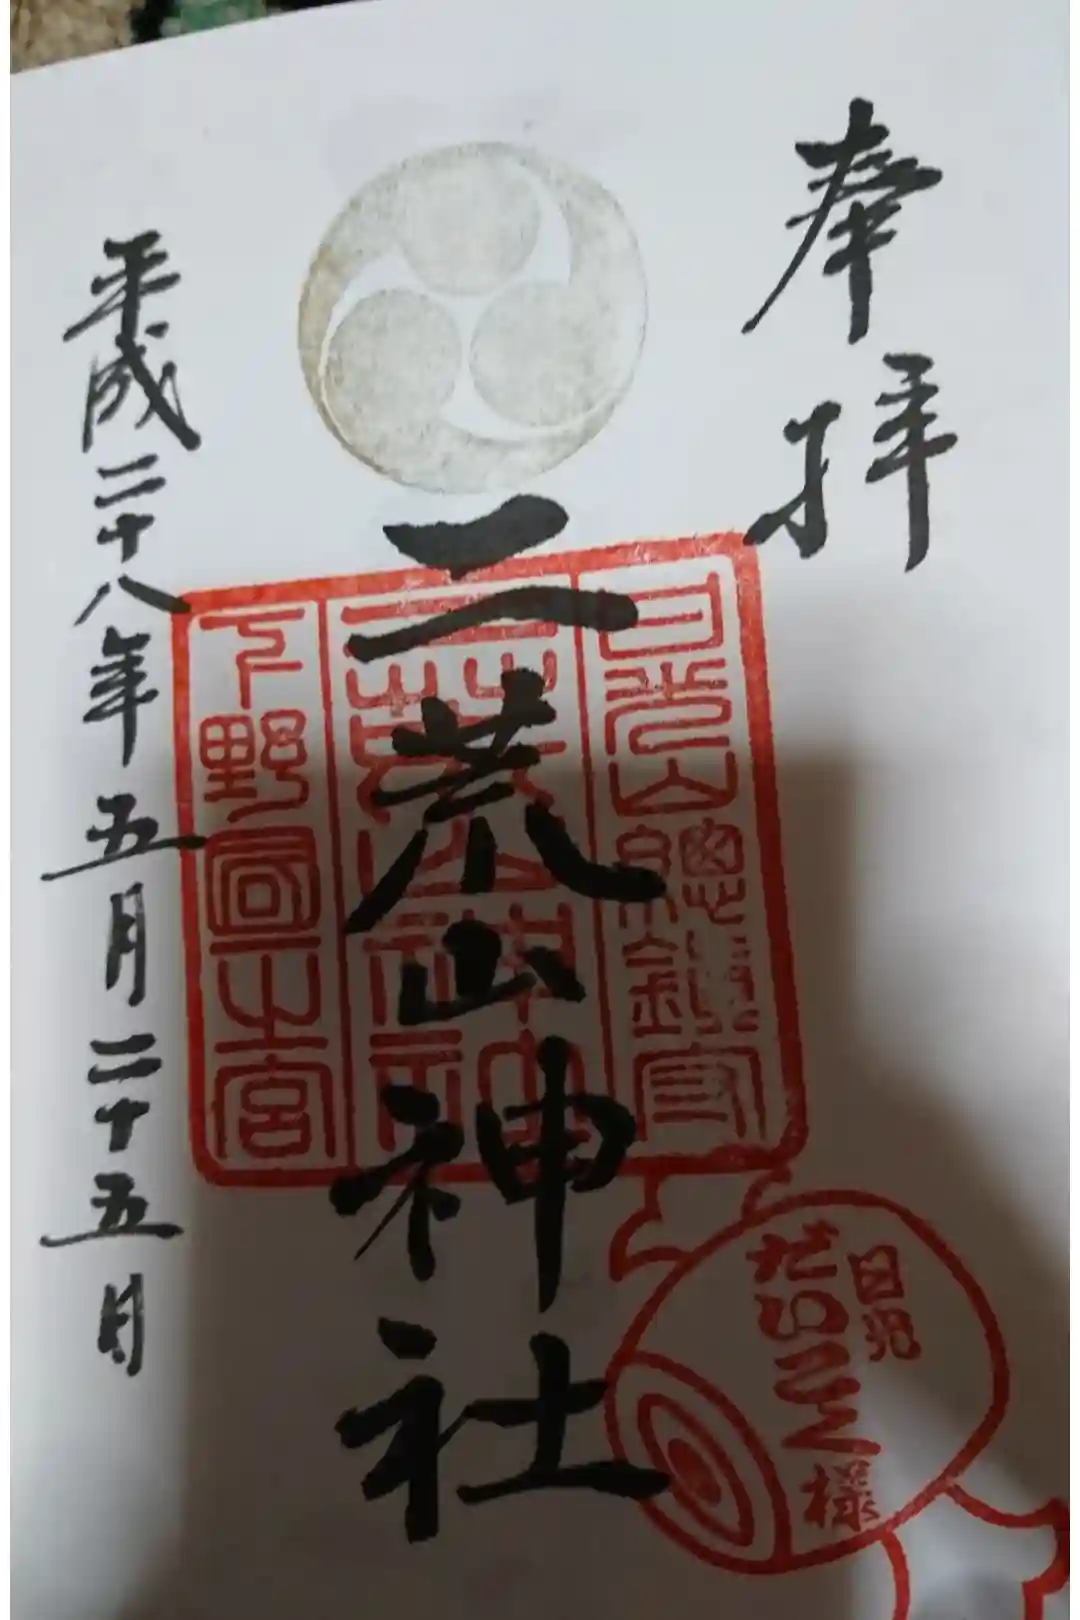 奉拝
日光山總鎮守
二荒山神社
二荒山神社
下野國一之宮
平成二十八年五月二十五日
日光
だいこく様